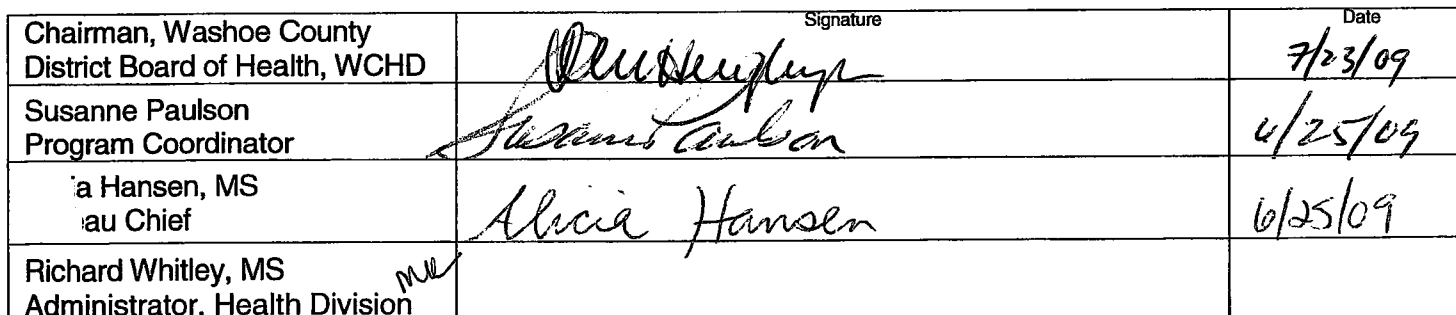 Signature Date
Chairman, Washoe County
District Board of Health, WCHD 7/23/09
Susanne Paulson
Program Coordinator Susanne Paulson 6/25/09
a Hansen, MS
au Chief Alicia Hansen 6/25/09
Richard Whitley, MS
Administrator, Health Division